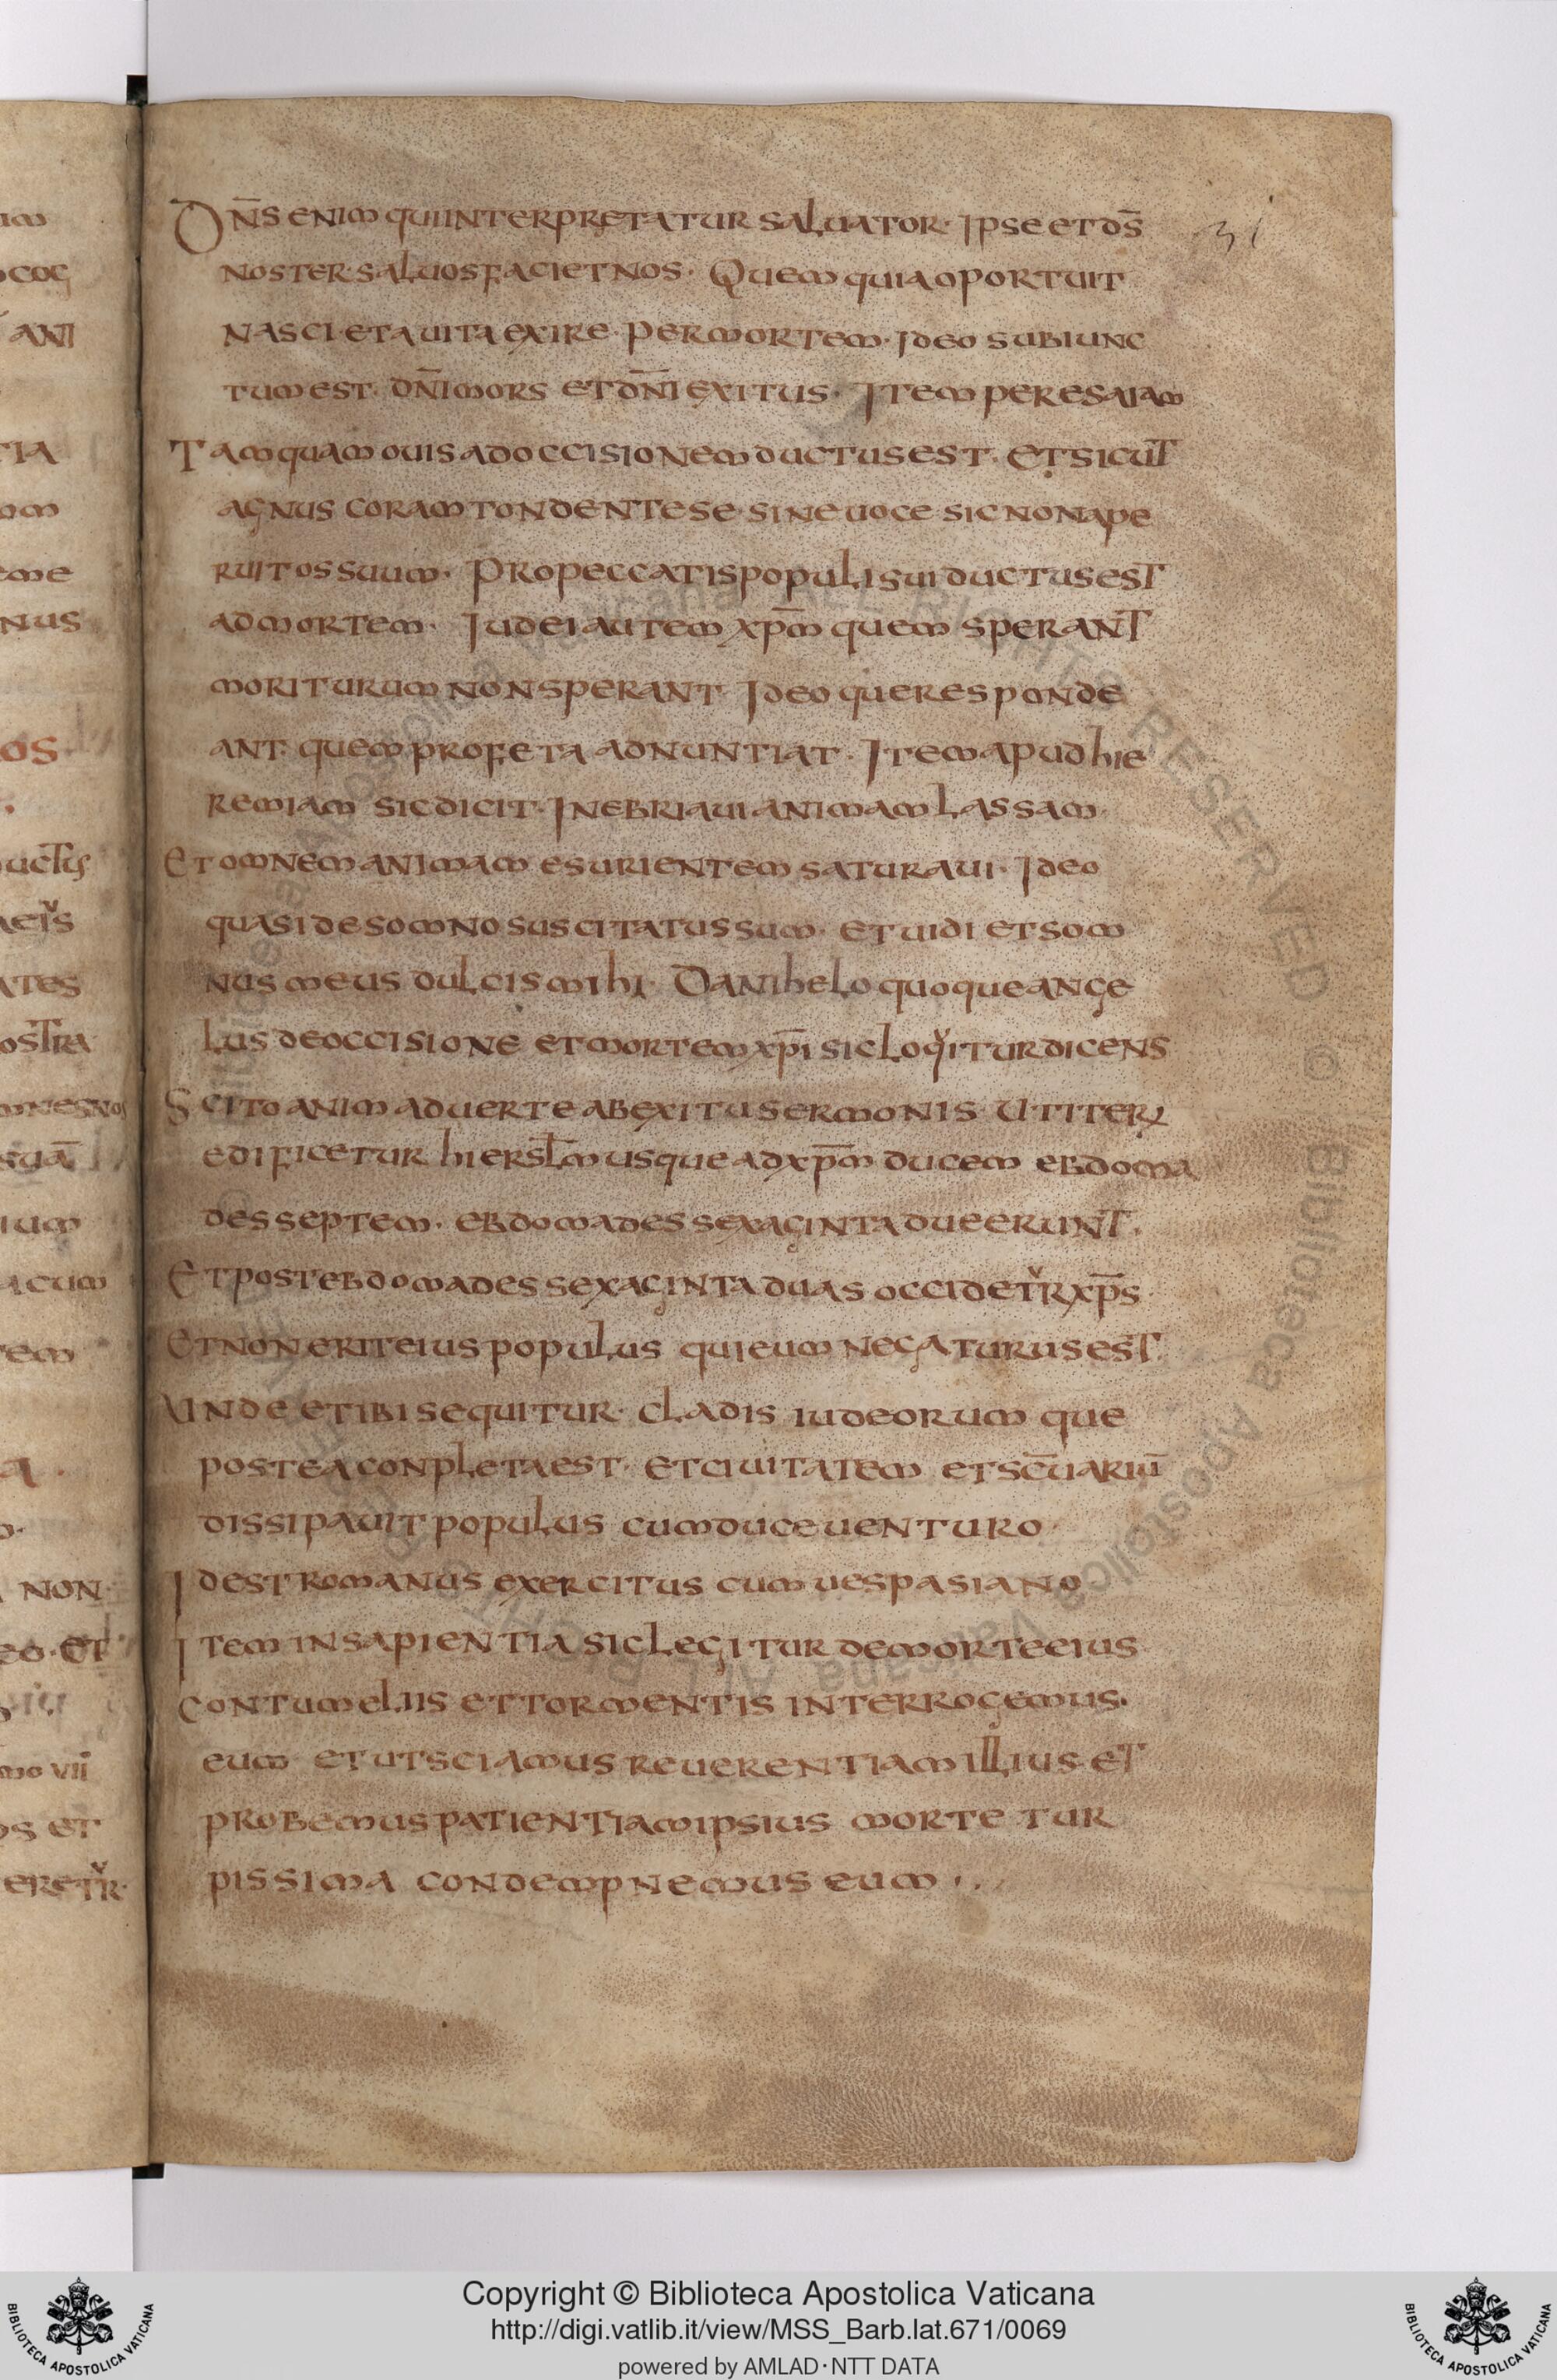 DN̄S ENIM QUI INTERPRETATUR SALUATOR· IPSE ET DS̄
NOSTER· SALUOS FACIET NOS· QUEM QUIA OPORTUIT
NASCI· ET A UITA EXIRE· PER MORTEM· IDEO SUBIUNC
TUM EST· DN̄I MORS ET DN̄I EXITUS· ITEM PER ESAIAM
TAMQUAM OUIS AD OCCISIONEM DUCTUS EST· ET SICUT
AGNUS CORAM TONDENTE SE· SINE UOCE· SIC NON APE
RUIT OS SUUM· PRO PECCATIS POPULI SUI DUCTUS EST
AD MORTEM· IUDEI AUTEM XP̄M QUEM SPERANT
MORITURUM NON SPERANT· IDEOQUE RESPONDE
ANT· QUEM PROFETA ADNUNTIAT· ITEM APUD HIE
REMIAM SIC DICIT· INEBRIAUI ANIMAM LASSAM·
ET OMNEM ANIMAM ESURIENTEM SATURAUI· IDEO
QUASI DE SOMNO SUSCITATUS SUM· ET UIDI ET SOM
NUS MEUS DULCIS MIHI· DANIHELO QUOQUE ANGE
LUS DE OCCISIONE ET MORTEM XP̄I SIC LOQITUR DICENS
SCITO ANIMADUERTE AB EXITU SERMONIS· UT ITERꝜ
EDIFICETUR HIERSL̄M USQUE AD XP̄M DUCEM EBDOMA
DES SEPTEM· EBDOMADES SEXAGINTA DUE ERUNT·
ET POST EBDOMADES SEXAGINTA DUAS OCCIDETR̆ XP̄S·
ET NON ERIT EIUS POPULUS QUI EUM NEGATURUS EST
UNDE ET IBI SEQUITUR· CLADIS IUDEORUM QUE
POSTEA CONPLETA EST· ET CIUITATEM ET SC̄UARIŪ
DISSIPAUIT POPULUS CUM DUCE UENTURO·
ID EST ROMANUS EXERCITUS CUM UESPASIANO
ITEM IN SAPIENTIA SIC LEGITUR DE MORTE EIUS
CONTUMELIIS ET TORMENTIS INTERROGEMUS·
EUM· ET UT SCIAMUS REUERENTIAM ILLIUS· ET
PROBEMUS PATIENTIAM IPSIUS MORTE TUR
PISSIMA CONDEMPNEMUS EUM·
31
Copyright © Biblioteca Apostolica Vaticana
http://digi.vatlib.it/view/MSS_Barb.lat.671/0069
powered by AMLAD·NTT DATA
BIBLIOTECA APOSTOLICA VATICANA
BIBLIOTECA APOSTOLICA VATICANA